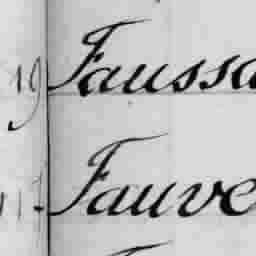 19 Faussa
Fauve